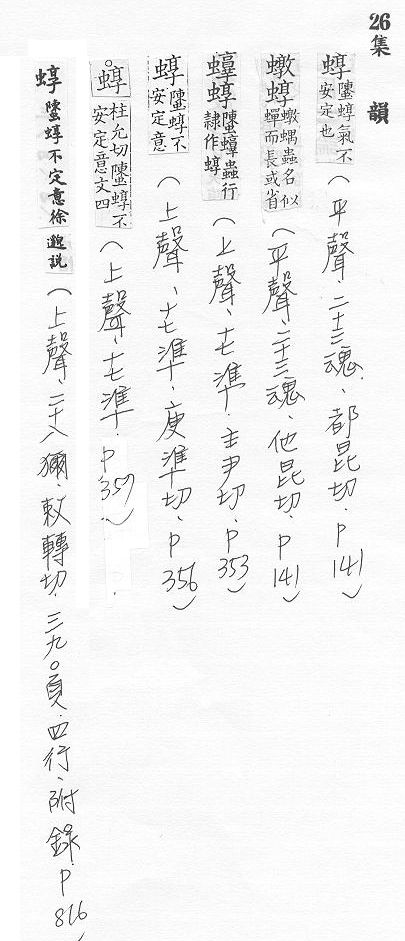 26集韻
蜳 螴蜳氣不安定也(平聲、二十三魂、都昆切、P141)
蜳 蟲名似蟬而長或省(平聲、二十三魂、他昆切、P141)
蜳 螴蜳蟲行隸作蜳(上聲、十七準、主尹切、P353)
蜳 螴蜳不安定意(上聲、十七準、庾準切、P356)
。蜳 柱允切螴蜳不安定意文四(上聲、十七準、P357)
蜳 螴蜳不定意徐邈說(上聲、二十八獮、敕轉切、三九〇頁、四行、附錄、P816)